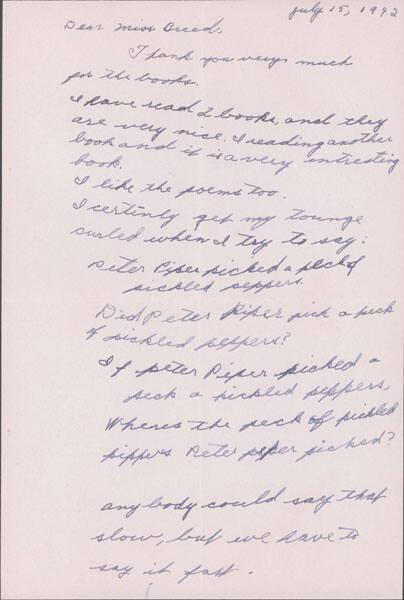 July 15, 1942
Dear Miss Breed,
Thank you verys much
for the books.
I have read 2 books, and they
are very nice. I reading another
book and it is a very intresting
book.
I like the poems too.
I certinly get my tounge
curled when I try to say:
Peter Piper picked a peck of
pickled peppers.
Did Peter Piper pick a peck
of pickled peppers?
If peter Piper picked a
peck a pickled peppers,
Wheres the peck of pickled
pippers Peter piper picked?
any body could say that
slow, but we have to
say it fast.